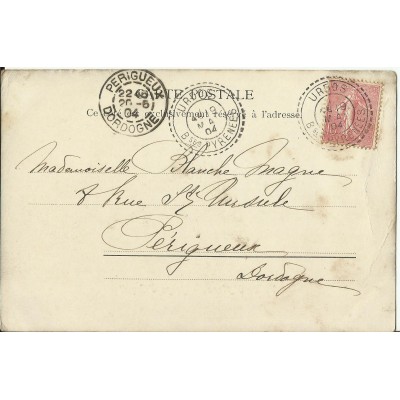 CARTE POSTALE
Ce côté est exclusivement réservé à l'adresse.
PÉRIGUEUX
22 40
20 -5
04
DORDOGNE
URDOS
04
Bses PYRÉNÉES
URDOS
Mademoiselle Blanche Magne
8 Rue Ste Ursule
Périgueux
Dordogne